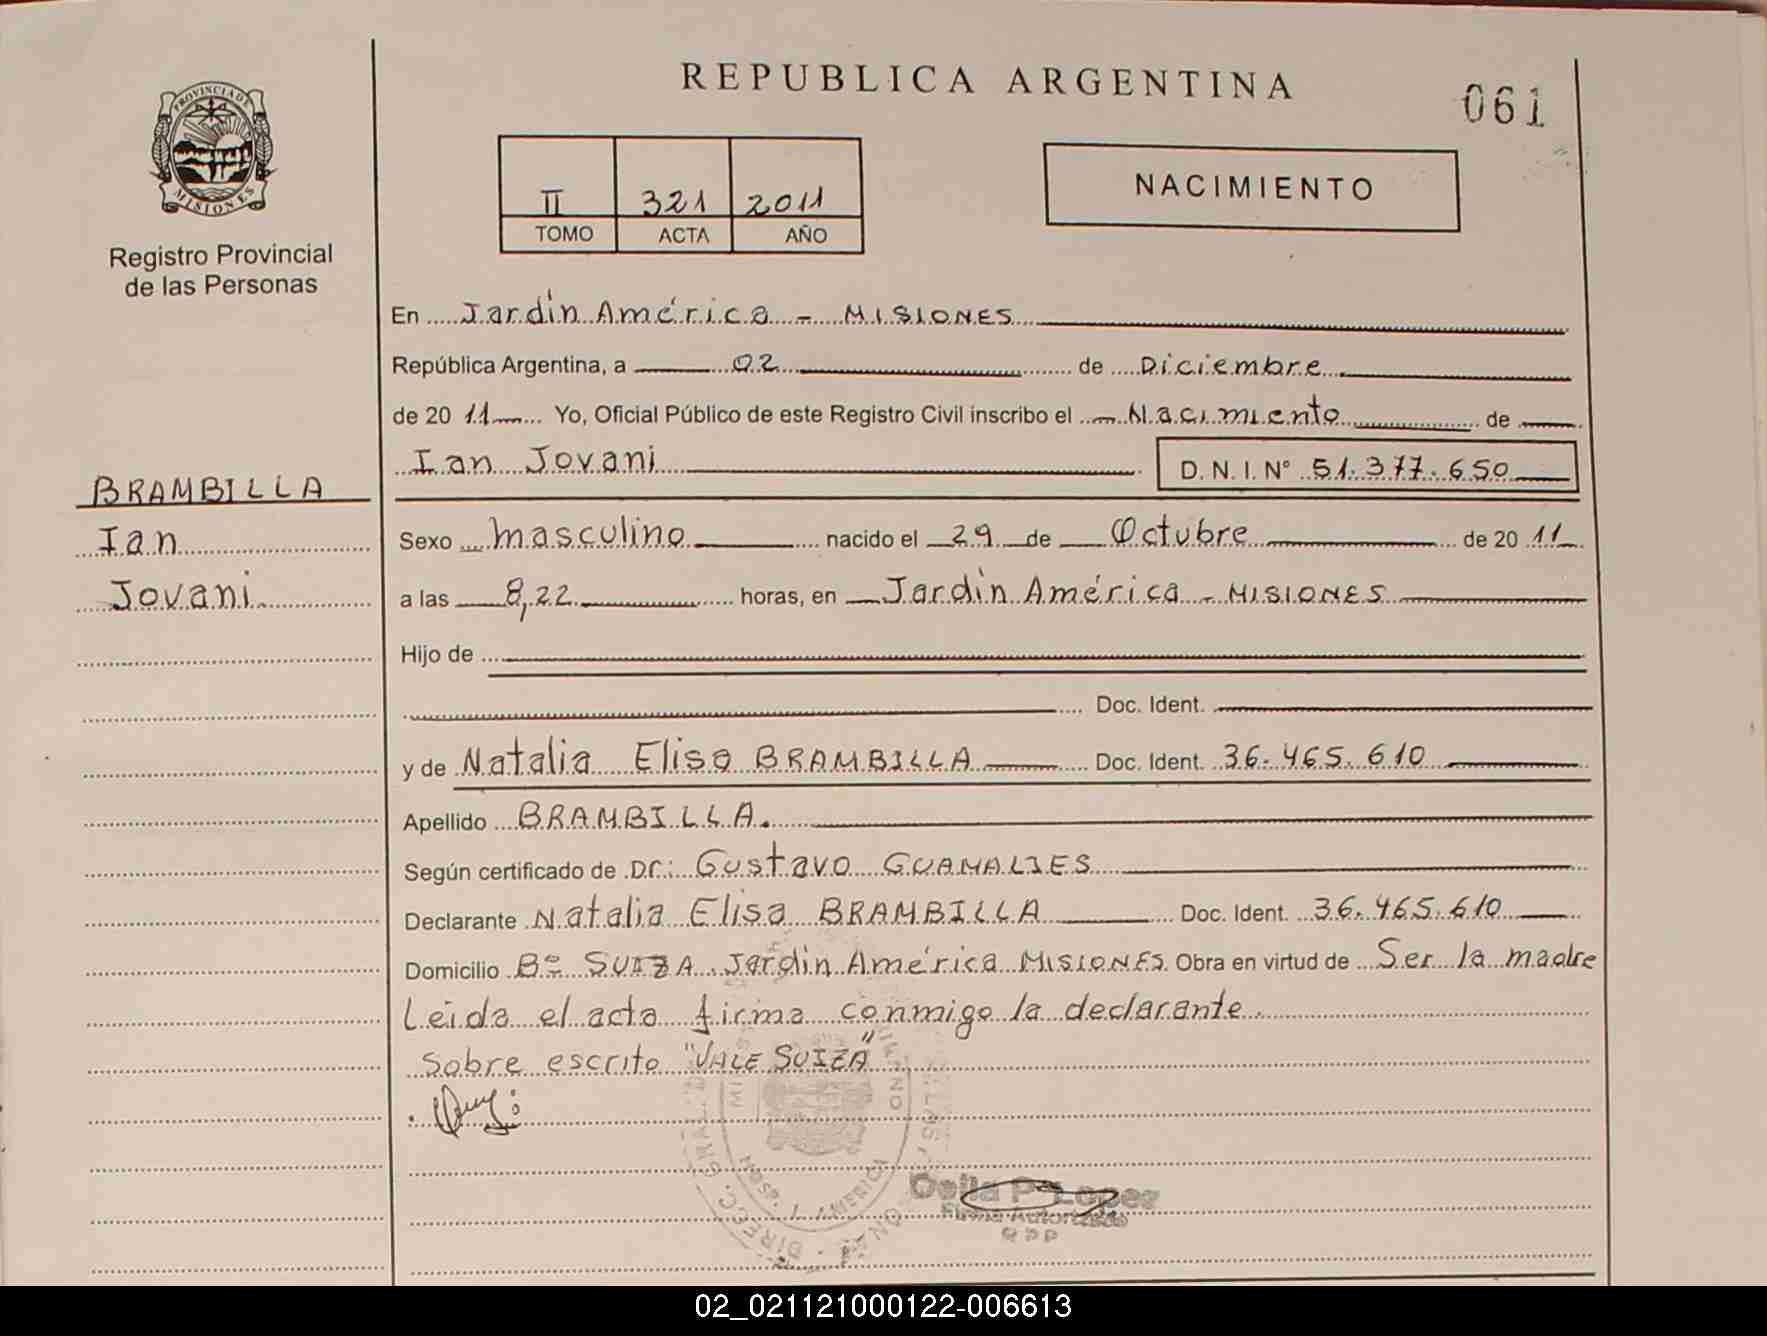 REPUBLICA ARGENTINA
061
PROVINCIA DE
MISIONES
Registro Provincial
de las Personas
II 321 2011
TOMO ACTA AÑO
NACIMIENTO
En Jardín América - MISIONES
República Argentina, a 02 de Diciembre
de 2011 Yo, Oficial Público de este Registro Civil inscribo el Nacimiento de
Ian Jovani D.N.I. N° 51.377.650
BRAMBILLA
Ian
Jovani
Sexo masculino nacido el 29 de Octubre de 2011
a las 8,22 horas, en Jardín América - MISIONES
Hijo de
Doc. Ident.
y de Natalia Elisa BRAMBILLA Doc. Ident. 36.465.610
Apellido BRAMBILLA.
Según certificado de Dr: Gustavo GUAMALIES
Declarante Natalia Elisa BRAMBILLA Doc. Ident. 36.465.610
Domicilio Bº SUIZA Jardín América MISIONES Obra en virtud de Ser la madre
Leida el acta firma conmigo la declarante.
Sobre escrito "VALE SUIZA"
Delia P. Lopez
Firma Autorizada
RPP
02_021121000122-006613